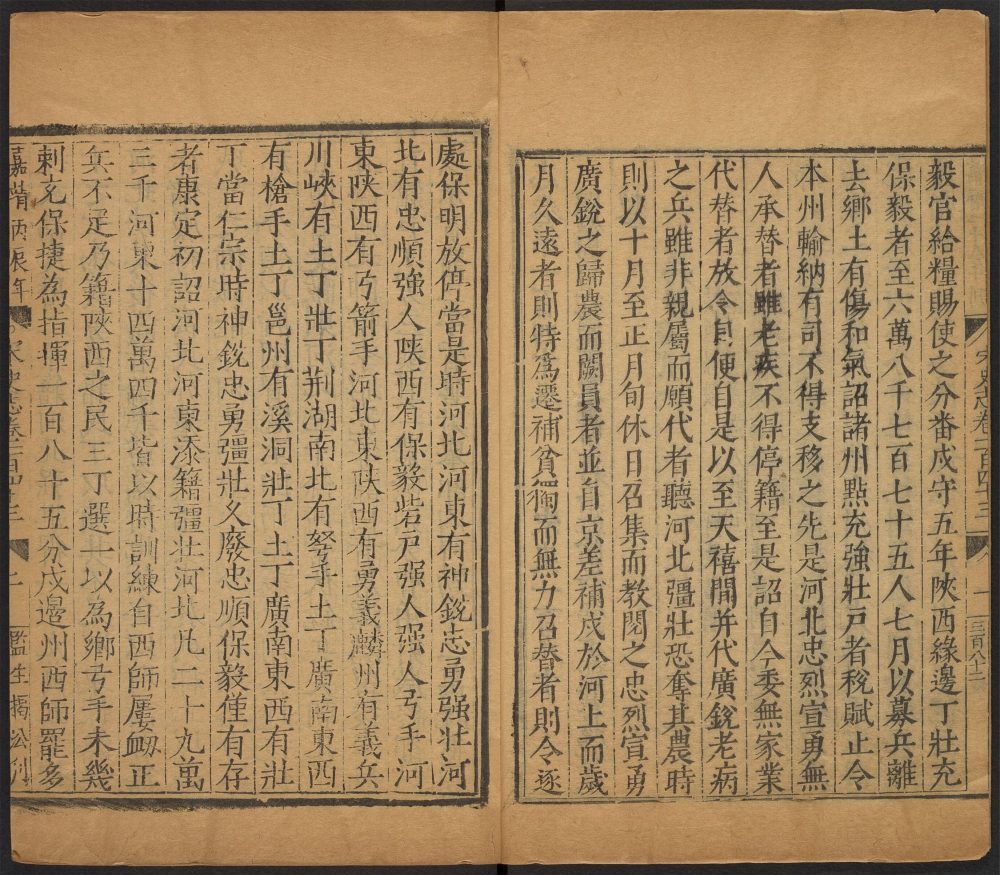 毅官給糧賜使之分番戍守五年陝西緣邊丁壯充
保毅者至六萬八千七百七十五人七月以募兵離
去鄉土有傷和氣詔諸州點充強壯戶者稅賦止令
本州輸納有司不得支移之先是河北忠烈宣勇無
人承替者雖老疾不得停籍至是詔自今委無家業
代替者放令自便自是以至天禧間并代廣銳老病
之兵雖非親屬而願代者聽河北彊壯恐奪其農時
則以十月至正月旬休日召集而教閱之忠烈宣勇
廣銳之歸農而闕員者並自京差補戍於河上而歲
月久遠者則特為遷補貧獨而無力召替者則令逐
宋史志卷一百四十三
一
三百八十二
處保明放停當是時河北河東有神銳忠勇强壯河
北有忠順強人陝西有保毅砦戶强人强人弓手河
東陝西有弓箭手河北東陝西有勇義麟州有義兵
川峽有土丁壯丁荆湖南北有弩手土丁廣南東西
有槍手土丁邕州有溪洞壯丁土丁廣南東西有壯
丁當仁宗時神銳忠勇彊壯久廢忠順保毅僅有存
者康定初詔河北河東添籍彊壯河北凡二十九萬
三千河東十四萬四千皆以時訓練自西師屢衂正
兵不足乃籍陝西之民三丁選一以為鄉弓手未幾
刺充保捷為指揮一百八十五分戍邊州西師罷多
嘉靖丙辰年
宋史志卷一百四十三
二
監生揭公刊